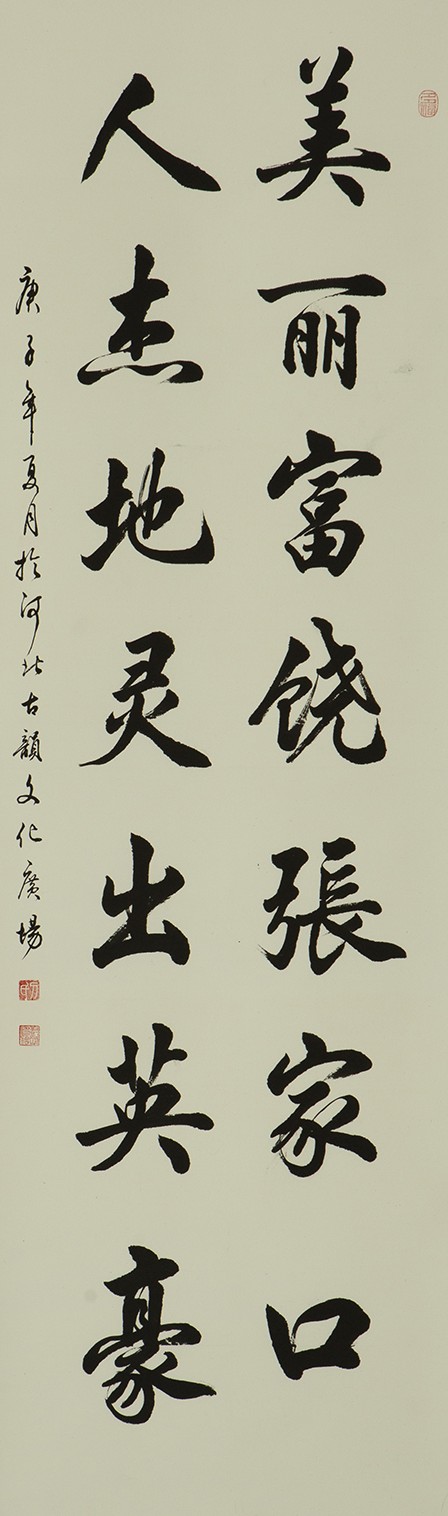 美丽富饶張家口
人杰地灵出英豪
庚子年夏月於河北古韻文化廣場